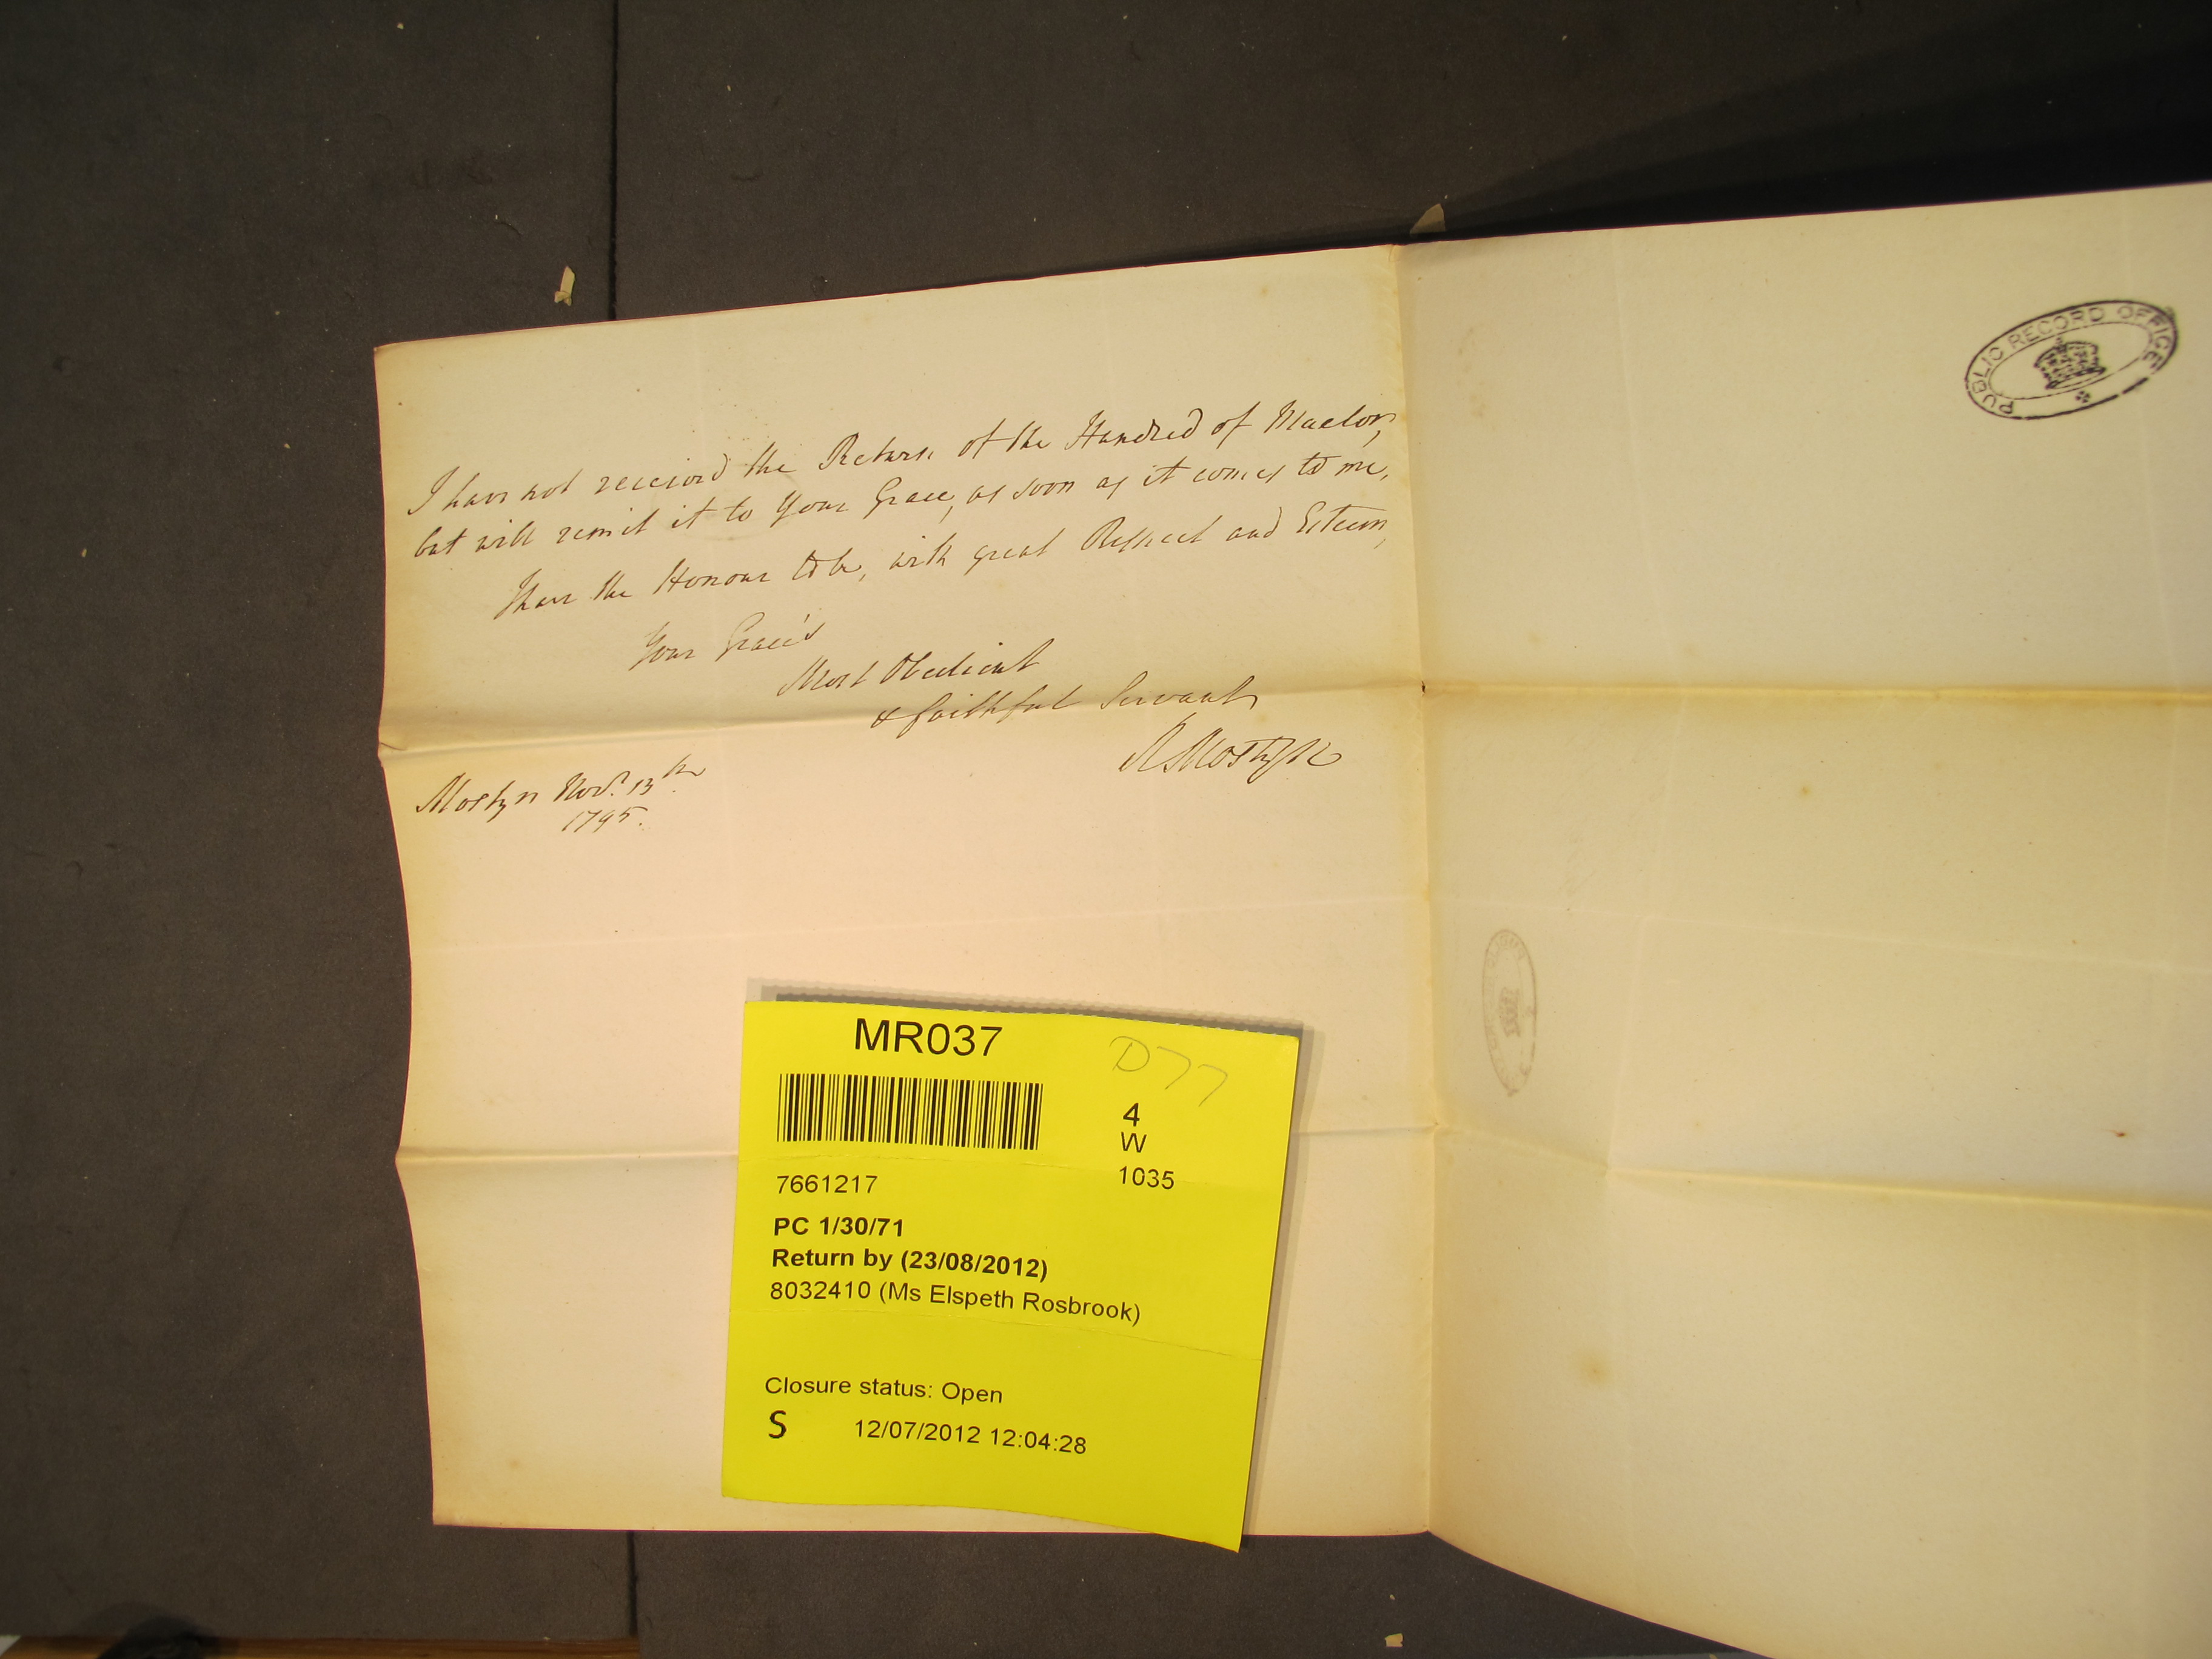 I have not receivd the Return of the Hundred of Maelor,
but will remit it to Your Grace, as soon as it comes to me,
I have the Honour to be, with great Respect and Esteem,
Your Grace's
Most Obedient
& faithful Servant
R Mostyn
Mostyn Novr. 13th
1795.
PUBLIC RECORD OFFICE
MR037
D77
4
W
1035
7661217
PC 1/30/71
Return by (23/08/2012)
8032410 (Ms Elspeth Rosbrook)
Closure status: Open
S 12/07/2012 12:04:28